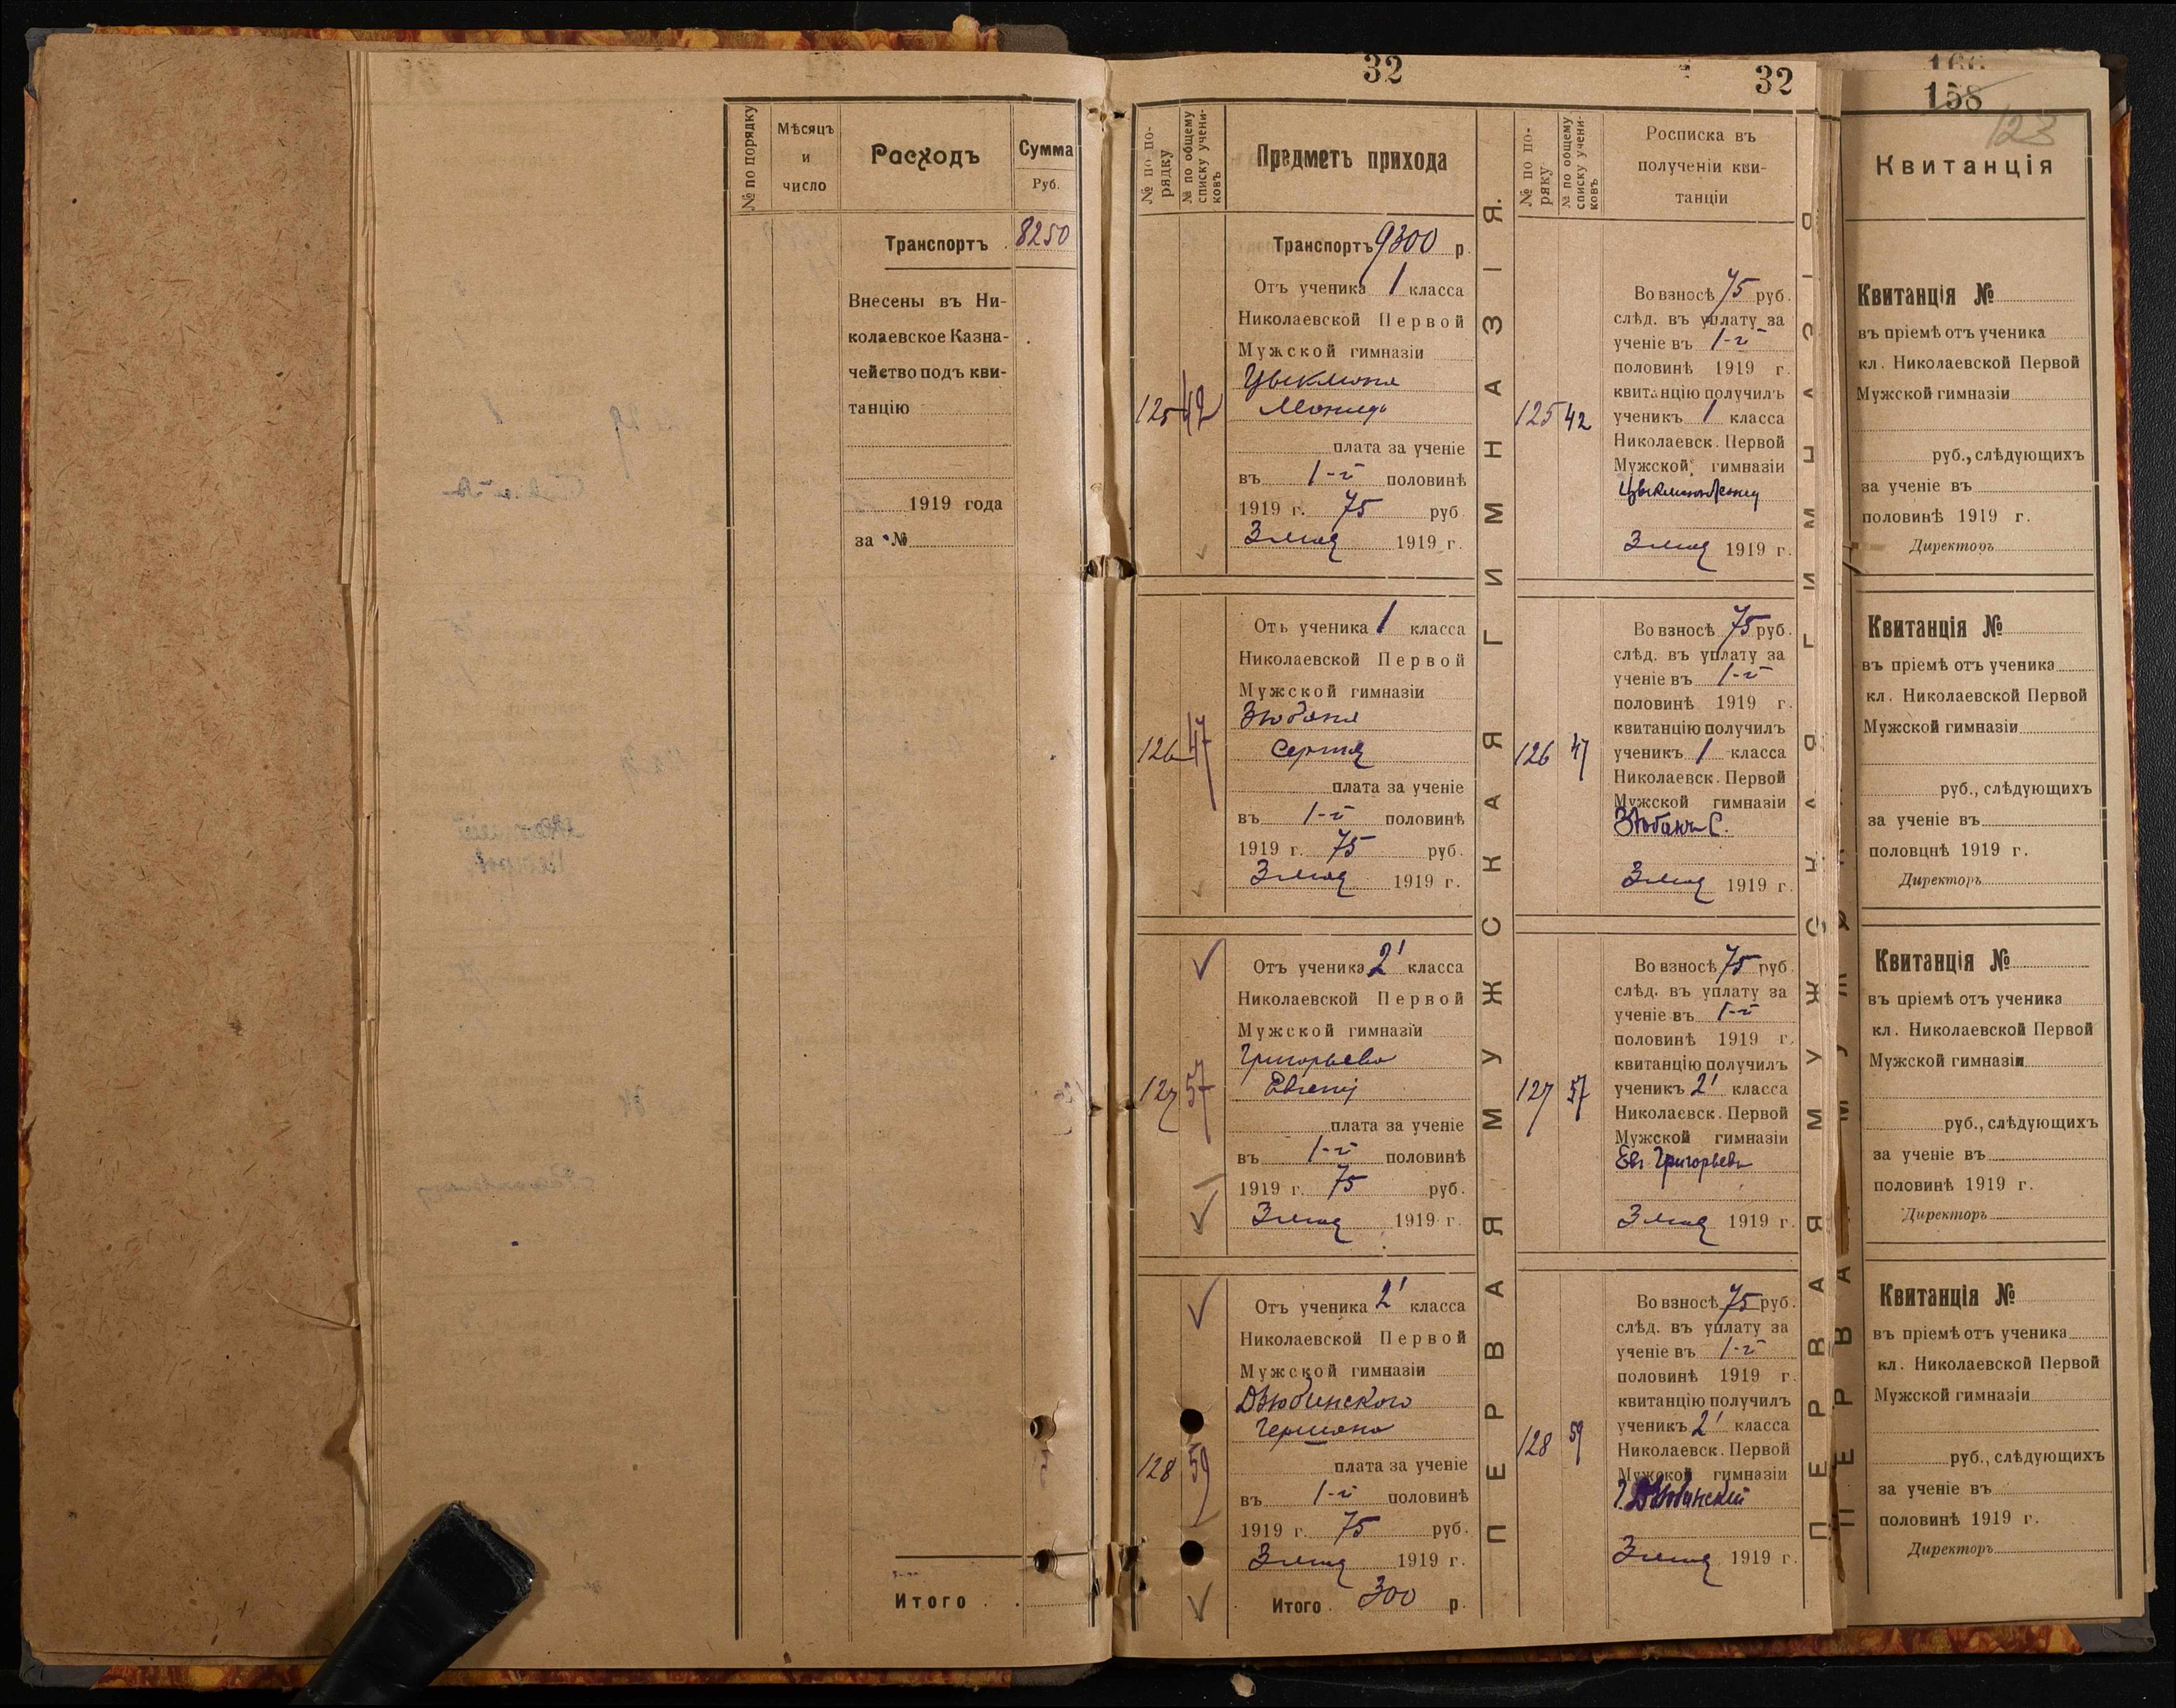 № по порядку
Мѣсяцъ
и
число
Расходъ
Сумма
Руб.
Транспортъ . 8250
Внесены въ Ни-
колаевское Казна-
чейство подъ кви-
танцію
1919 года
за №
Итого . .
32
№ по по-
рядку
№ по общему
списку учени-
ковъ
Предметъ прихода
Транспортъ 9300 р.
Отъ ученика 1 класса
Николаевской Первой
Мужской гимназіи
125 42
плата за ученіе
въ 1-й половинѣ
1919 г. 75 руб.
3 мая 1919 г.
Отъ ученика 1 класса
Николаевской Первой
Мужской гимназіи
Зюбана
126 47 Сергѣя
плата за ученіе
въ 1-й половинѣ
1919 г. 75 руб.
3 мая 1919 г.
Отъ ученика 2' класса
Николаевской Первой
Мужской гимназіи
Григорьева
127 57 Евгенiя
плата за ученіе
въ 1-й половинѣ
1919 г. 75 руб.
3 мая 1919 г.
Отъ ученика 2' класса
Николаевской Первой
Мужской гимназіи
Дзюбинского
Германа
128 59 плата за ученіе
въ 1-й половинѣ
1919 г. 75 руб.
3 мая 1919 г.
Итого . 300 р.
ПЕРВАЯ МУЖСКАЯ ГИМНАЗІЯ.
32
№ по по-
ряку
№ по общему
списку учени-
ковъ
Росписка въ
полученіи кви-
танціи
Во взносѣ 75 руб.
слѣд. въ уплату за
ученіе въ 1-й
половинѣ 1919 г.
квитанцію получилъ
125 42 ученикъ 1 класса
Николаевск. Первой
Мужской гимназіи
3 мая 1919 г.
Во взносѣ 75 руб.
слѣд. въ уплату за
ученіе въ 1-й
половинѣ 1919 г.
квитанцію получилъ
126 47 ученикъ 1 класса
Николаевск. Первой
Мужской гимназіи
Зюбанъ С.
3 мая 1919 г.
Во взносѣ 75 руб.
слѣд. въ уплату за
ученіе въ 1-й
половинѣ 1919 г.
квитанцію получилъ
127 57 ученикъ 2' класса
Николаевск. Первой
Мужской гимназіи
Евг. Григорьевъ
3 мая 1919 г.
Во взносѣ 75 руб.
слѣд. въ уплату за
ученіе въ 1-й
половинѣ 1919 г.
квитанцію получилъ
128 59 ученикъ 2' класса
Николаевск. Первой
Мужской гимназіи
Г. Дзюбинскій
3 мая 1919 г.
166
158
123
Квитанція
Квитанція №
въ пріемѣ отъ ученика
кл. Николаевской Первой
Мужской гимназіи
руб., слѣдующихъ
за ученіе въ
половинѣ 1919 г.
Директоръ
Квитанція №
въ пріемѣ отъ ученика
кл. Николаевской Первой
Мужской гимназіи
руб., слѣдующихъ
за ученіе въ
половцнѣ 1919 г.
Директоръ
Квитанція №
въ пріемѣ отъ ученика
кл. Николаевской Первой
Мужской гимназіи
руб., слѣдующихъ
за ученіе въ
половинѣ 1919 г.
Директоръ
Квитанція №
въ пріемѣ отъ ученика
кл. Николаевской Первой
Мужской гимназіи
руб., слѣдующихъ
за ученіе въ
половинѣ 1919 г.
Директоръ